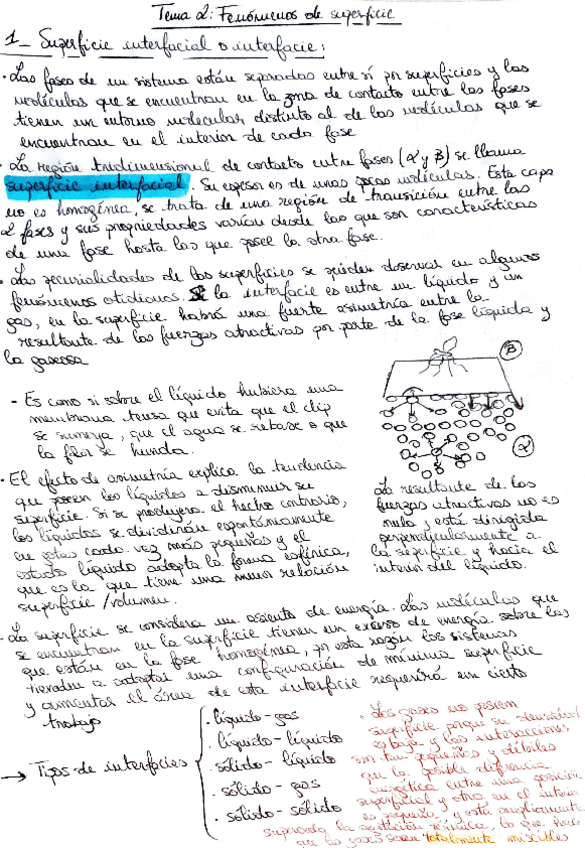 Tema 2: Fenómenos de superficie
1_ Superficie interfacial o interfacie:
· Las fases de un sistema están separadas entre sí por superficies y las
moléculas que se encuentran en la zona de contacto entre las fases
tienen un entorno molecular distinto al de las moléculas que se
encuentran en el interior de cada fase
· La región tridimensional de contacto entre fases (α y β) se llama
superficie interfacial. Su espesor es de unas pocas moléculas. Esta capa
no es homogénea, se trata de una región de transición entre las
2 fases y sus propiedades varían desde las que son características
de una fase hasta las que posee la otra fase.
· Las peculialidades de las superficies se pueden observar en algunos
fenómenos cotidianos. Si la interfacie es entre un líquido y un
gas, en la superficie habrá una fuerte asimetría entre la
resultante de las fuerzas atractivas por parte de la fase líquida y
la gaseosa
- Es como si sobre el líquido hubiera una
membrana tensa que evita que el clip
se sumerja, que el agua se rebase o que
la flor se hunda.
β
α
· El efecto de asimetría explica la tendencia
que poseen los líquidos a disminuir su
superficie. Si se produjera el hecho contrario,
los líquidos se dividirían espontáneamente
en gotas cada vez más pequeñas y el
estado líquido adopta la forma esférica,
que es la que tiene una menor relación
superficie/volumen.
La resultante de las
fuerzas atractivas no es
nula y está dirigida
perpendicularmente a
la superficie y hacia el
interior del líquido.
· La superficie se considera un asiento de energía. Las moléculas que
se encuentran en la superficie tienen un exceso de energía sobre las
que están en la fase homogénea, por esta razón los sistemas
tienden a adoptar una configuración de mínima superficie
y aumentar el área de esta interfacie requerirá un cierto
trabajo
→ Tipos de interfacies
· líquido-gas
· líquido-líquido
· sólido-líquido
· sólido-gas
· sólido-sólido
· Los gases no poseen
superficie porque su densidad
es baja y las interacciones
son tan pequeñas y débiles
que la posible diferencia
energética entre una posición
superficial y otra en el interior
es pequeña, y está ampliamente
superada la agitación térmica, lo que hace
que los gases sean totalmente miscibles